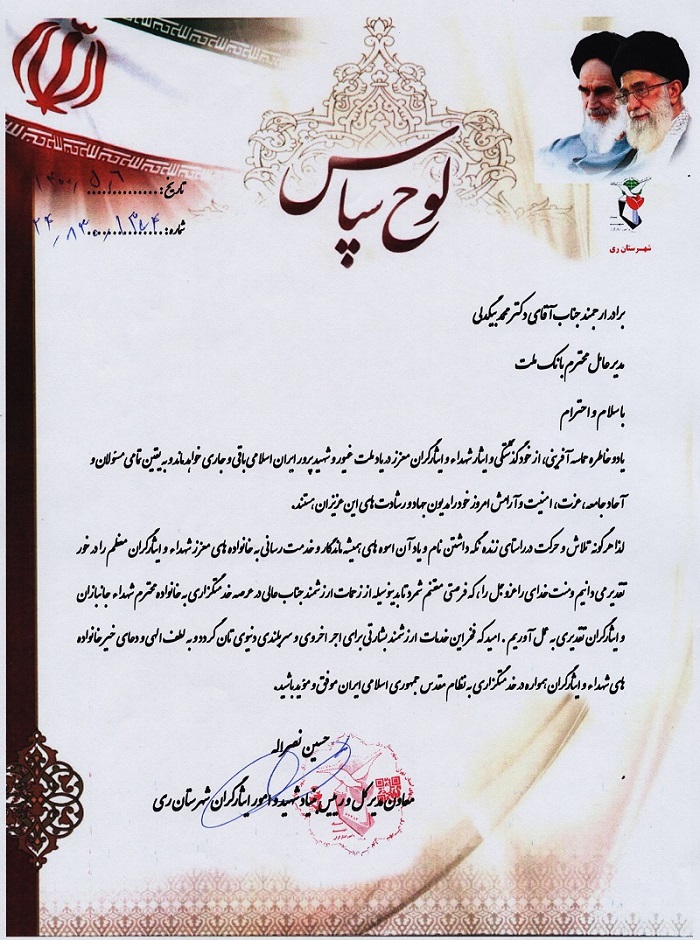 لوح سپاس
تاریخ: ۱۴۰۰/۵/۶
شماره:
شهرستان ری
برادر ارجمند جناب آقای دکتر محمد بیگدلی
مدیرعامل محترم بانک ملت
با سلام و احترام
یاد و خاطره حماسه آفرینی، از خودگذشتگی و ایثار شهداء و ایثارگران معزز در یاد ملت غیور و شهیدپرور ایران اسلامی باقی و جاری خواهد ماند و به یقین تمامی مسئولان و
آحاد جامعه، عزت، امنیت و آرامش امروز خود را مدیون جهاد و رشادت های این عزیزان هستند.
لذا هرگونه تلاش و حرکت در راستای زنده نگه داشتن نام و یاد آن اسوه های همیشه ماندگار و خدمت رسانی به خانواده های معزز شهداء و ایثارگران معظم را در خور
تقدیر می دانیم و منت خدای را عزوجل را، که فرصتی مغتنم شمرد تا بدینوسیله از زحمات ارزشمند جناب عالی در عرصه خدمتگزاری به خانواده محترم شهداء جانبازان
و ایثارگران تقدیری به عمل آوریم. امید که فخر این خدمات ارزشمند بشارتی برای اجر اخروی و سربلندی دنیوی تان گردد و به لطف الهی و دعای خیر خانواده
های شهداء و ایثارگران همواره در خدمتگزاری به نظام مقدس جمهوری اسلامی ایران موفق و موید باشید.
حسین نصراله
معاون مدیرکل و رییس بنیاد شهید و امور ایثارگران شهرستان ری